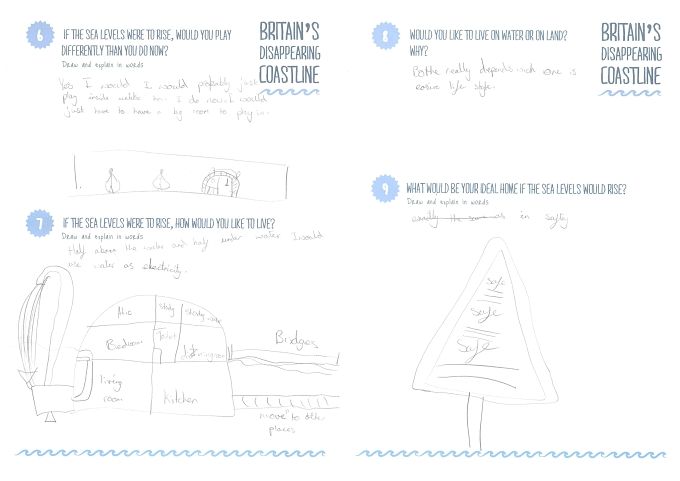 6
IF THE SEA LEVELS WERE TO RISE, WOULD YOU PLAY
DIFFERENTLY THAN YOU DO NOW?
Draw and explain in words
BRITAIN'S
DISAPPEARING
COASTLINE
Yes I would I would probably just
play inside unlike how I do now I would
just have to have a big room to play in.
7
IF THE SEA LEVELS WERE TO RISE, HOW WOULD YOU LIKE TO LIVE?
Draw and explain in words
Half above the water and half under water I would
use water as electricity.
Attic
study
Bedroom
Toilet
living
room
Kitchen
Bridges
move to other
places
8
WOULD YOU LIKE TO LIVE ON WATER OR ON LAND?
WHY?
BRITAIN'S
DISAPPEARING
COASTLINE
Bothe really depends which one is
easier life style.
9
WHAT WOULD BE YOUR IDEAL HOME IF THE SEA LEVELS WOULD RISE?
Draw and explain in words
as in safty
safe
safe
safe